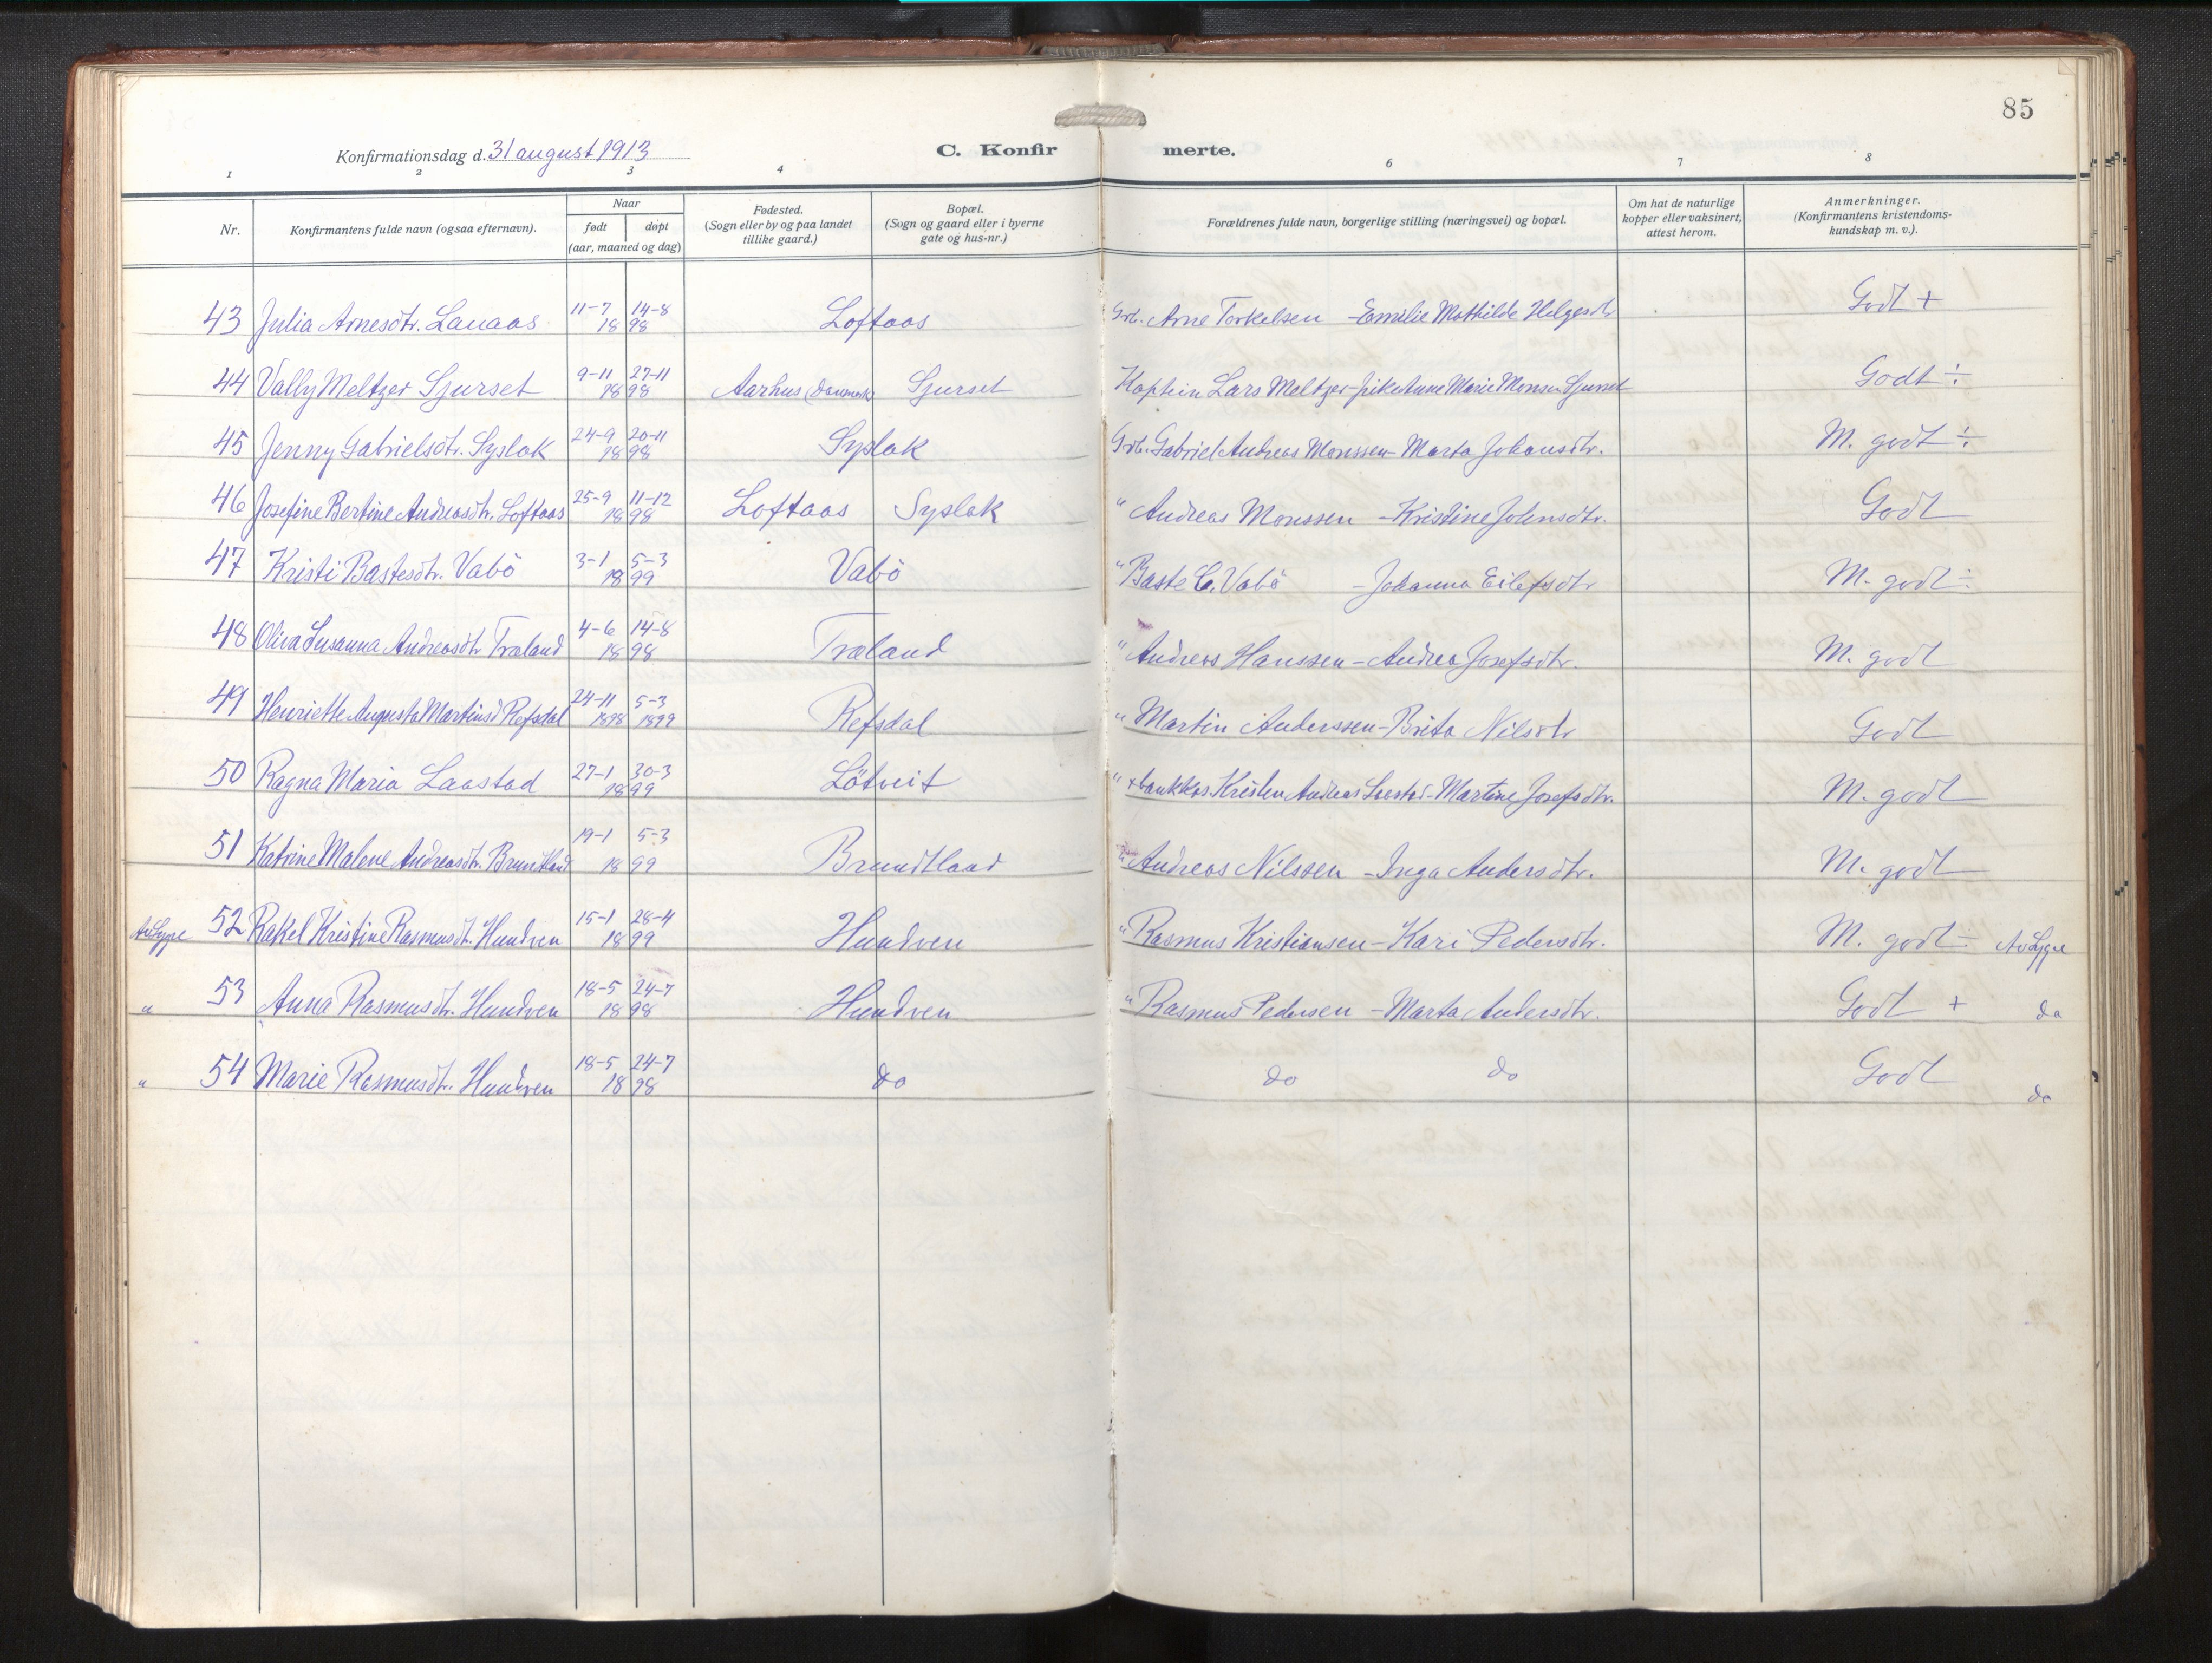 85
Konfirmationsdag d. 31 august 1913 C. Konfir merte.
1 2 3 4 6 7 8
Nr. Konfirmantens fulde navn (ogsaa efternavn). Naar født døpt (aar, maaned og dag) Fødested. (Sogn eller by og paa landet tillike gaard.) Bopæl. (Sogn og gaard eller i byerne gate og hus-nr.) Forældrenes fulde navn, borgerlige stilling (næringsvei) og bopæl. Om hat de naturlige kopper eller vaksinert, attest herom. Anmerkninger. (Konfirmantens kristendoms-kundskap m. v.).
43 Julia Arnesdtr. Lanaas 11-7 14-8 1898 Loftaas Grb. Arne Torkelsen - Emilie Mathilde Helgesdtr Godt +
44 Vally Meltzer Sjurset 9-11 27-11 1898 Aarhus (Danmark) Sjurset Kaptein Lars Meltzer - pike Anne Marie Monsen Sjurset Godt ÷
45 Jenny Gabrielsdtr. Syslak 24-9 20-11 1898 Syslak Grb. Gabriel Andreas Monssen - Marta Johansdtr. M. godt ÷
46 Josefine Bertine Andreasdtr. Loftaas 25-9 11-12 1898 Loftaas Syslak " Andreas Monssen - Kristine Johnsdtr. Godt
47 Kristi Bastesdtr. Vabö 3-1 5-3 1899 Vabö " Baste C. Vabö - Johanna Eilefsdtr M. godt ÷
48 Oliva Susanna Andreasdtr Træland 4-6 14-8 1898 Træland " Andreas Hanssen - Andrea Josefsdtr. M. godt
49 Henriette Augusta Martinsd Refsdal 24-11 1898 5-3 1899 Refsdal " Martin Anderssen - Brita Nilsdtr Godt
50 Ragna Maria Laastad 27-1 30-3 1899 Lötveit " + bankkas. Kristen Andreas Laastad - Martine Josefsdtr. M. godt
51 Katrine Malene Andreasdtr. Brundtland 19-1 5-3 1899 Brundtland " Andreas Nilssen - Inga Andersdtr. M. godt
52 Rakel Kristine Rasmusdt. Hundven 15-1 28-4 1899 Hundven " Rasmus Kristiansen - Kari Pedersdtr. M. godt ÷
" 53 Anna Rasmusdtr. Hundven 18-5 24-7 1898 Hundven " Rasmus Pedersen - Marta Andersdtr. Godt + do
" 54 Marie Rasmusdtr. Hundven 18-5 24-7 1898 do do do Godt do